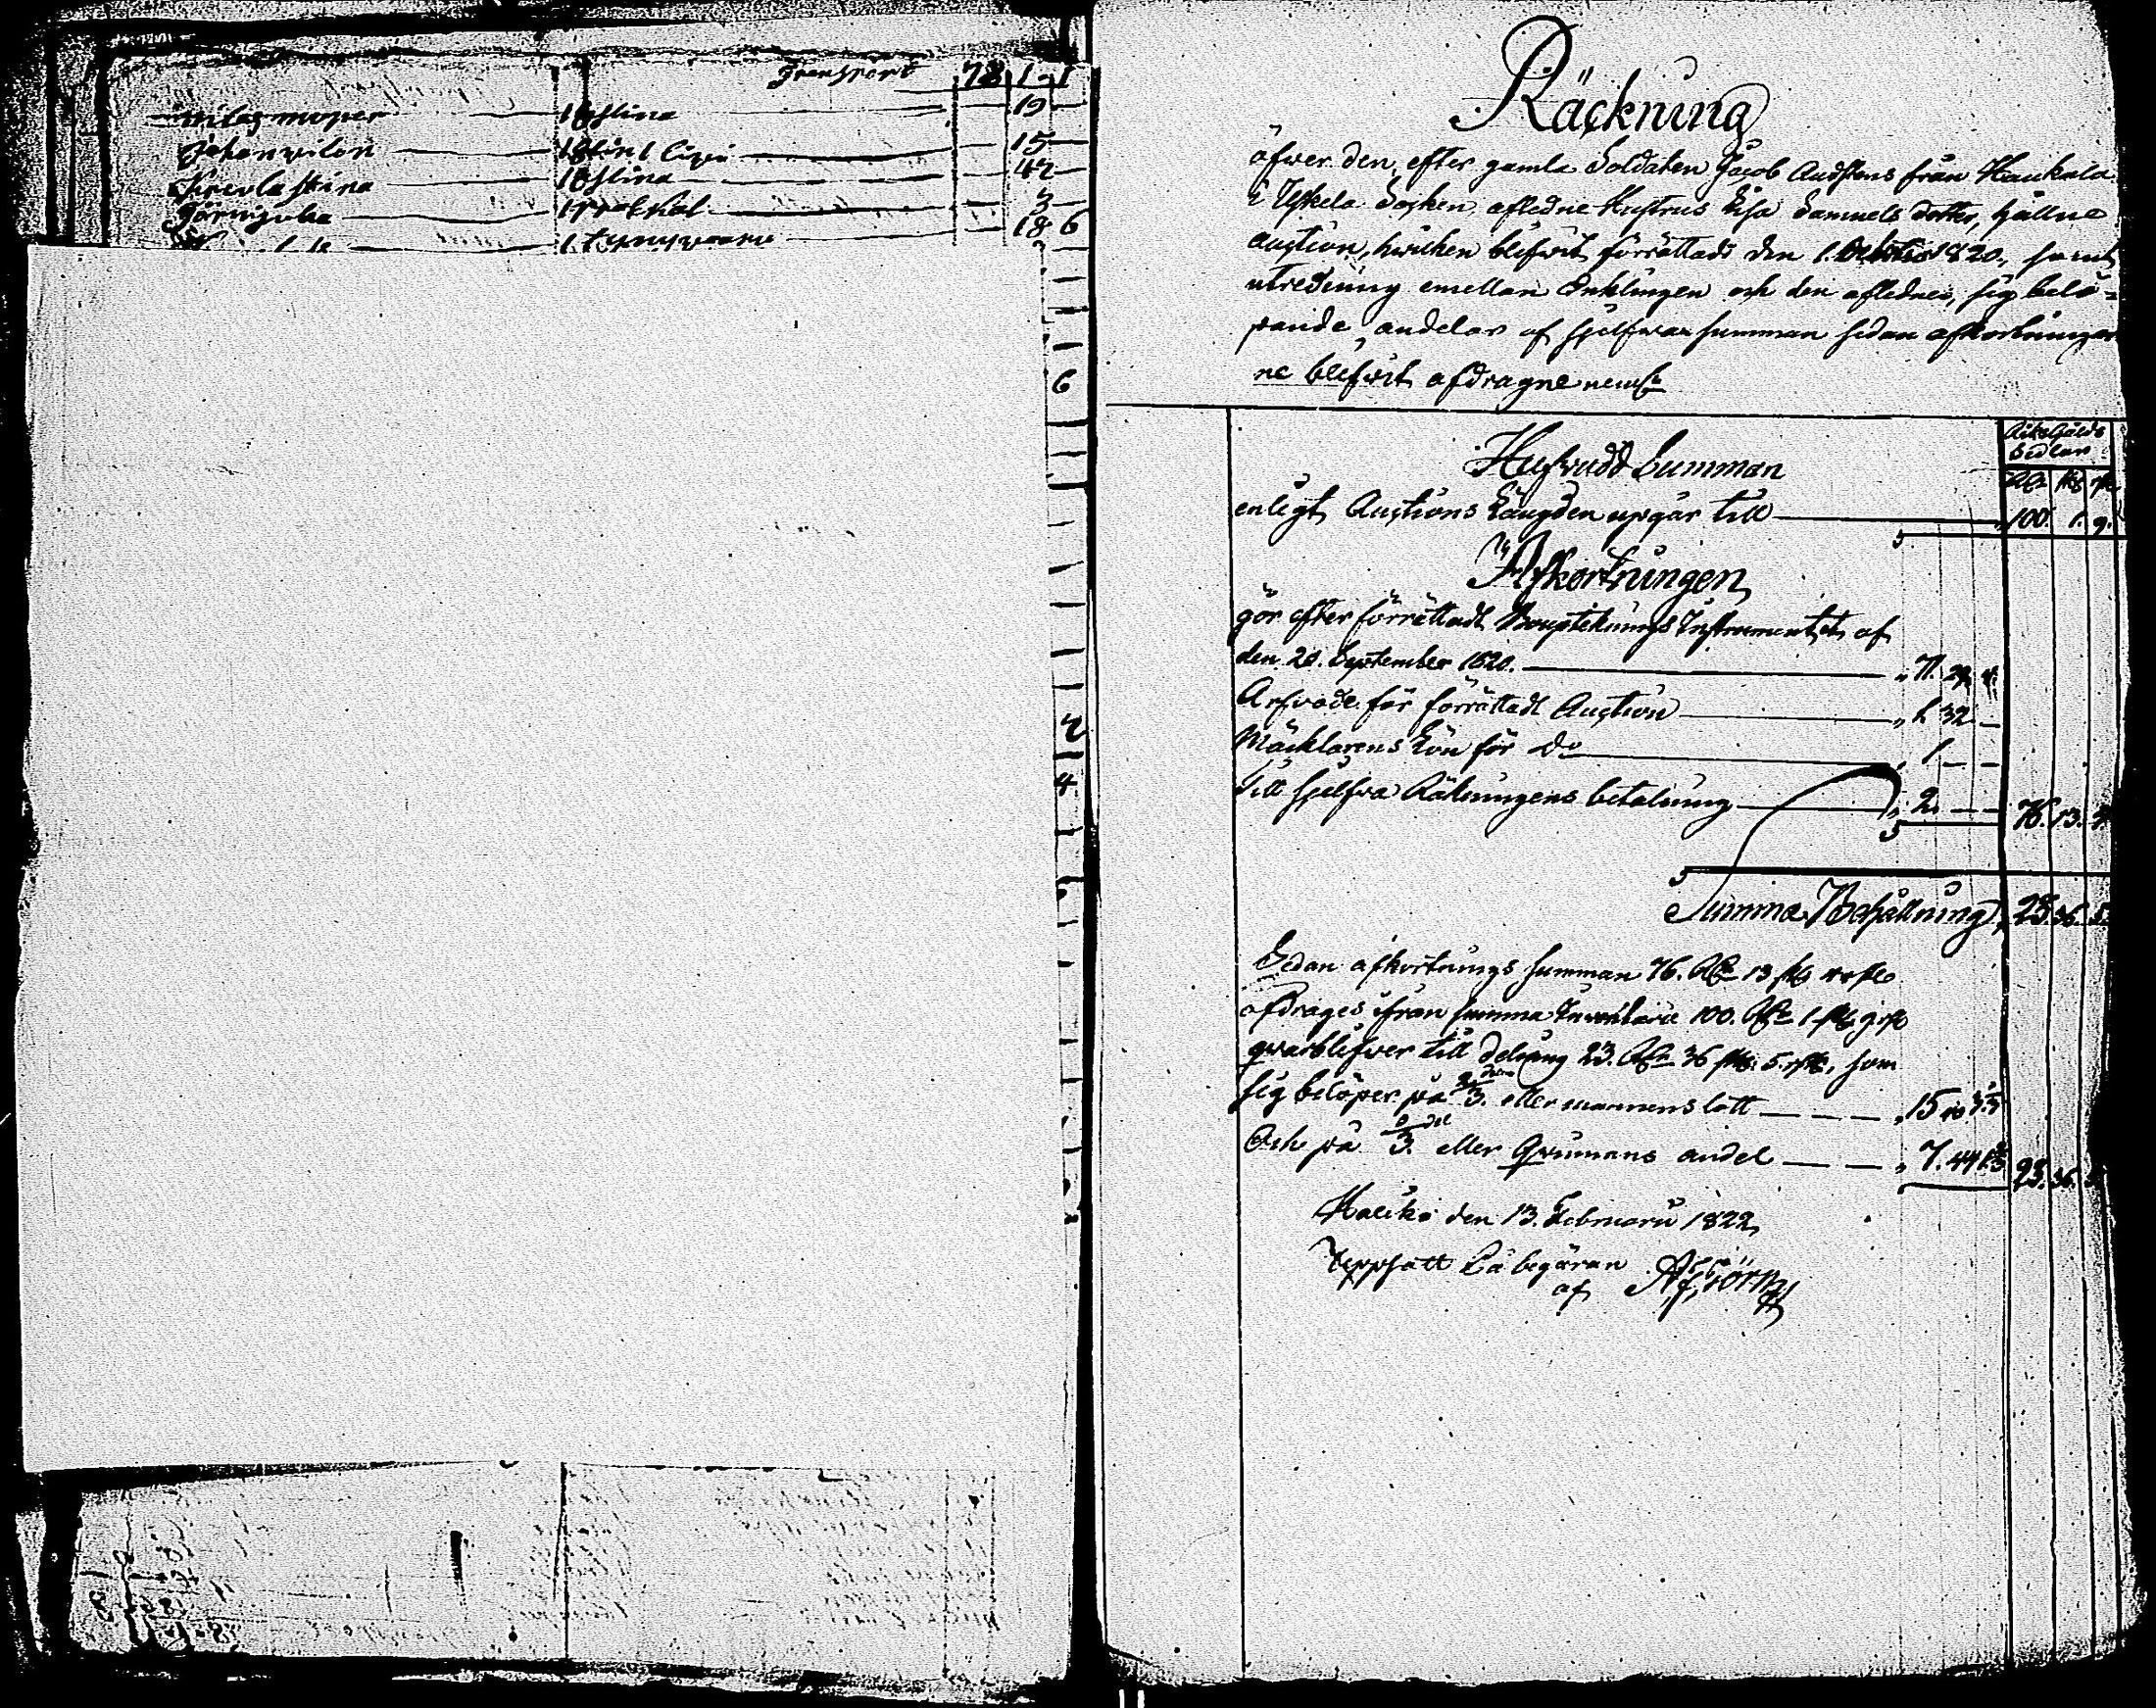 Transport 78 1 1
19
Johan 15
Stina 42
3
18 6
6
2
4
Räckning
öfwer den, efter gamla Soldaten Jacob Audstens från Haukala
i Uskela Socken, afledne Hustrus Lisa Samuels dotter, hållne
auction, hwilken blifwit förrättadt den 1. October 1820, samt
utredning emellan Enklingen och den aflednes, sig belö=
pande andelar af sjelfwa summan sedan afkortningar
ne blifwit afdragne neml.
Riks Gälds
Sedlar
Hufvudd Summan
R. sk. rst.
enligt Auctions Längden upgår till 100. 1. 9.
Afkortningen
gör efter förrättadt Boupteknings Instrumentet af
den 20. September 1820. 71. 29. 4.
Arfvode för förrättadt Auction 1. 32
Mäcklarens Lön för do 1
Till sjelfva Räkningens betalning 2. 76. 13. 4.
Summa Behållning, 23. 36. 5.
Sedan afkortnings summan 76. R. 13 sk. 4 rst.
afdrages ifrån summa Inventarie 100. R. 1 sk. 9 rst.
qwarblifwer till delning 23. R. 36 sk. 5. rst., som
sig belöper på 2/3. eller mannens lott 15 40. 3 1/3
Och på 1/3. del eller Qwinnans andel 7. 44 1 2/3 23. 36. 5.
Haliko den 13. Februarii 1822
Uppsatt På begäran
af